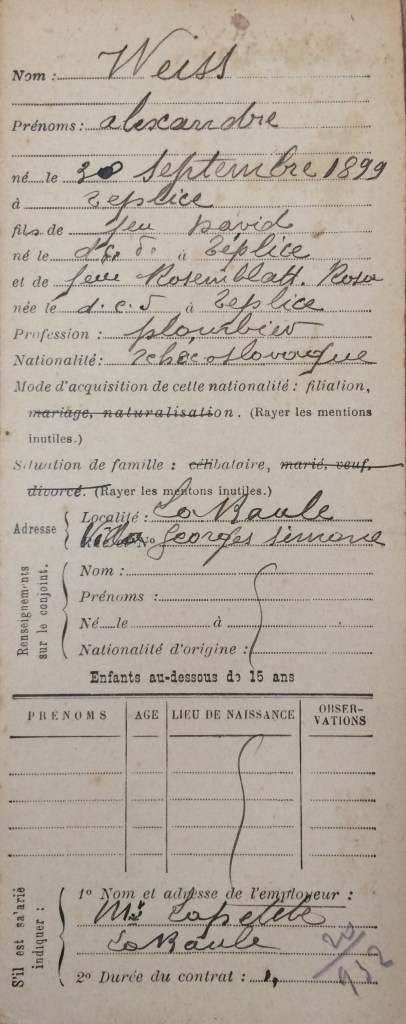 Nom : Weiss
Prénoms : alexandre
né le 30 Septembre 1899
à Teplice
fils de feu David
né le d.c.d. à Téplice
et de feue Rosemblatt. Rosa
née le d.c.d à Teplice
Profession : plombier
Nationalité : Tchécoslovaque
Mode d'acquisition de cette nationalité : filiation,
mariage, naturalisation. (Rayer les mentions
inutiles.)
Situation de famille : célibataire, marié, veuf,
divorcé. (Rayer les mentons inutiles.)
Adresse
Localité : La Baule
Villa Georges Simone
Renseignements
sur le conjoint.
Nom :
Prénoms :
Né le à
Nationalité d'origine :
Enfants au-dessous de 15 ans
PRÉNOMS AGE LIEU DE NAISSANCE OBSER-
VATIONS
S'il est sa'arié
indiquer :
1° Nom et adresse de l'employeur :
La Baule
2° Durée du contrat :